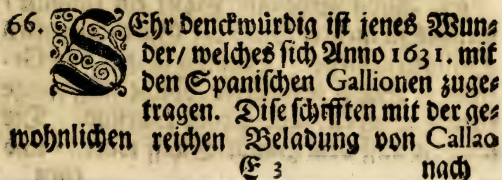 66. SEhr denckwürdig ist jenes Wun⸗
der/ welches sich Anno 1631. mit
den Spanischen Gallionen zuge⸗
tragen. Dise schifften mit der ge⸗
wohnlichen reichen Beladung von Callao
E 3 nach